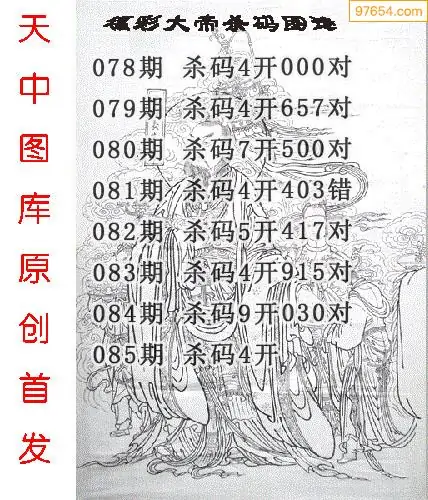 97654.com
福彩大帝杀码图谜
078期 杀码4开000对
079期 杀码4开657对
080期 杀码7开500对
081期 杀码4开403错
082期 杀码5开417对
083期 杀码4开915对
084期 杀码9开030对
085期 杀码4开
天中图库原创首发